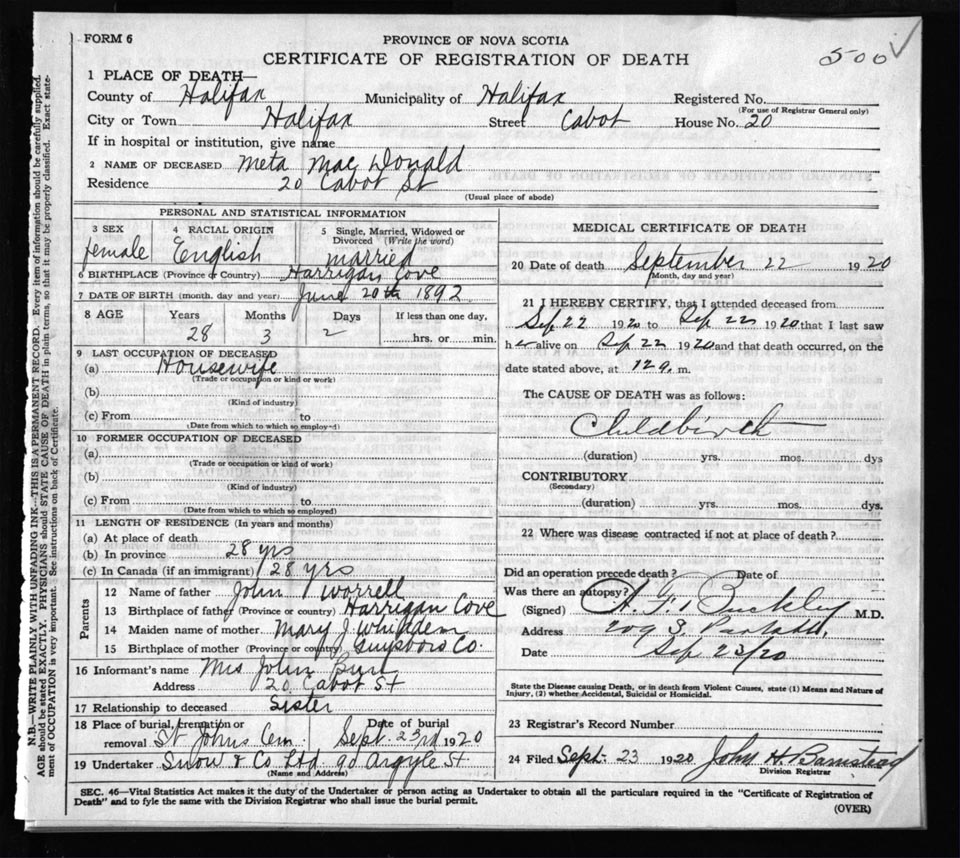 FORM 6
500 ✓
PROVINCE OF NOVA SCOTIA
CERTIFICATE OF REGISTRATION OF DEATH
1 PLACE OF DEATH—
County of Halifax Municipality of Halifax Registered No.
(For use of Registrar General only)
City or Town Halifax Street Cabot House No. 20
If in hospital or institution, give name
2 NAME OF DECEASED Meta MacDonald
Residence 20 Cabot St
(Usual place of abode)
PERSONAL AND STATISTICAL INFORMATION
3 SEX 4 RACIAL ORIGIN 5 Single, Married, Widowed or Divorced (Write the word)
female English married
6 BIRTHPLACE (Province or Country) Harrigan Cove
7 DATE OF BIRTH (month, day and year) June 20th 1892
8 AGE Years Months Days If less than one day,
28 3 2 hrs. or min.
9 LAST OCCUPATION OF DECEASED
(a) Housewife
(Trade or occupation or kind or work)
(b)
(Kind of industry)
(c) From to
(Date from which to which so employed)
10 FORMER OCCUPATION OF DECEASED
(a)
(Trade or occupation or kind of work)
(b)
(Kind of industry)
(c) From to
(Date from which to which so employed)
11 LENGTH OF RESIDENCE (In years and months)
(a) At place of death
(b) In province 28 yrs
(c) In Canada (if an immigrant) 28 yrs
Parents
12 Name of father John Worrell
13 Birthplace of father (Province or country) Harrigan Cove
14 Maiden name of mother Mary J. Whidden
15 Birthplace of mother (Province or country) Guysboro Co.
16 Informant's name Mrs John
Address 20 Cabot St
17 Relationship to deceased Sister
18 Place of burial, cremation or removal St Johns Cem. Date of burial Sept. 23rd 1920
19 Undertaker Snow & Co. Ltd. 90 Argyle St.
(Name and Address)
MEDICAL CERTIFICATE OF DEATH
20 Date of death September 22 1920
(Month, day and year)
21 I HEREBY CERTIFY, that I attended deceased from
Sep 22 1920 to Sep 22 1920 that I last saw
her alive on Sep 22 1920 and that death occurred, on the
date stated above, at m.
The CAUSE OF DEATH was as follows:
Childbirth
(duration) yrs. mos. dys
CONTRIBUTORY
(Secondary)
(duration) yrs. mos. dys.
22 Where was disease contracted if not at place of death?
Did an operation precede death? Date of
Was there an autopsy?
(Signed) Buckley M.D.
Address
Date Sep 23/20
State the Disease causing Death, or in death from Violent Causes, state (1) Means and Nature of
Injury, (2) whether Accidental, Suicidal or Homicidal.
23 Registrar's Record Number
24 Filed Sept. 23 1920 John H. Barnstead
Division Registrar
SEC. 46—Vital Statistics Act makes it the duty of the Undertaker or person acting as Undertaker to obtain all the particulars required in the "Certificate of Registration of
Death" and to fyle the same with the Division Registrar who shall issue the burial permit.
(OVER)
N.B.—WRITE PLAINLY WITH UNFADING INK—THIS IS A PERMANENT RECORD. Every item of information should be carefully supplied.
AGE should be stated EXACTLY. PHYSICIANS should STATE CAUSE OF DEATH in plain terms, so that it may be properly classified. Exact state-
ment of OCCUPATION is very important. See instructions on back of Certificate.